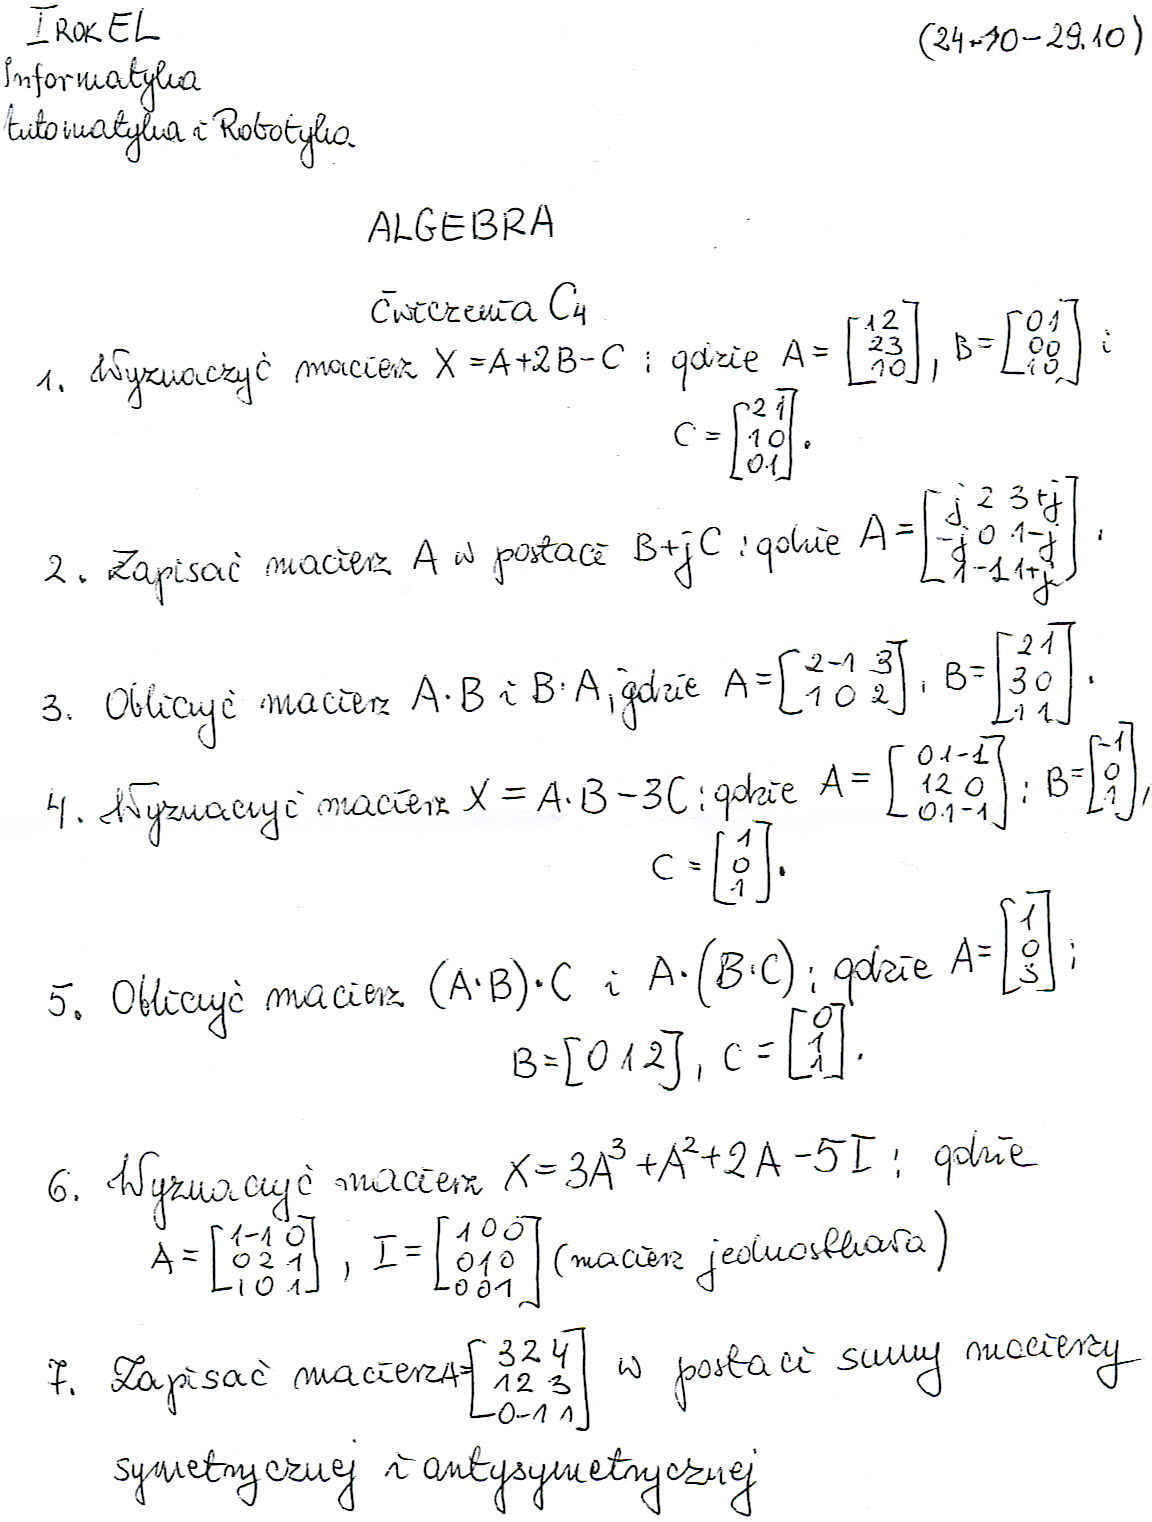 I ROK EL (24.10-29.10)
Informatyka
Automatyka i Robotyka
ALGEBRA
Ćwiczenia C4
1. Wyznaczyć macierz X = A+2B-C ; gdzie A = [1 2; 2 3; 1 0], B = [0 1; 0 0; 1 0] i
C = [2 1; 1 0; 0 1].
2. Zapisać macierz A w postaci B+jC ; gdzie A = [j 2 3+j; -j 0 1-j; 1 -1 1+j].
3. Obliczyć macierz A·B i B·A, gdzie A = [2 -1 3; 1 0 2], B = [2 1; 3 0; 1 1].
4. Wyznaczyć macierz X = A·B-3C ; gdzie A = [0 1 -1; 1 2 0; 0 1 -1]; B = [-1; 0; 1],
C = [1; 0; 1].
5. Obliczyć macierz (A·B)·C i A·(B·C); gdzie A = [1; 0; 3];
B = [0 1 2], C = [0; 1; 1].
6. Wyznaczyć macierz X = 3A³+A²+2A-5I ; gdzie
A = [1 -1 0; 0 2 1; 1 0 1], I = [1 0 0; 0 1 0; 0 0 1] (macierz jednostkowa)
7. Zapisać macierz A= [3 2 4; 1 2 3; 0 -1 1] w postaci sumy macierzy
symetrycznej i antysymetrycznej